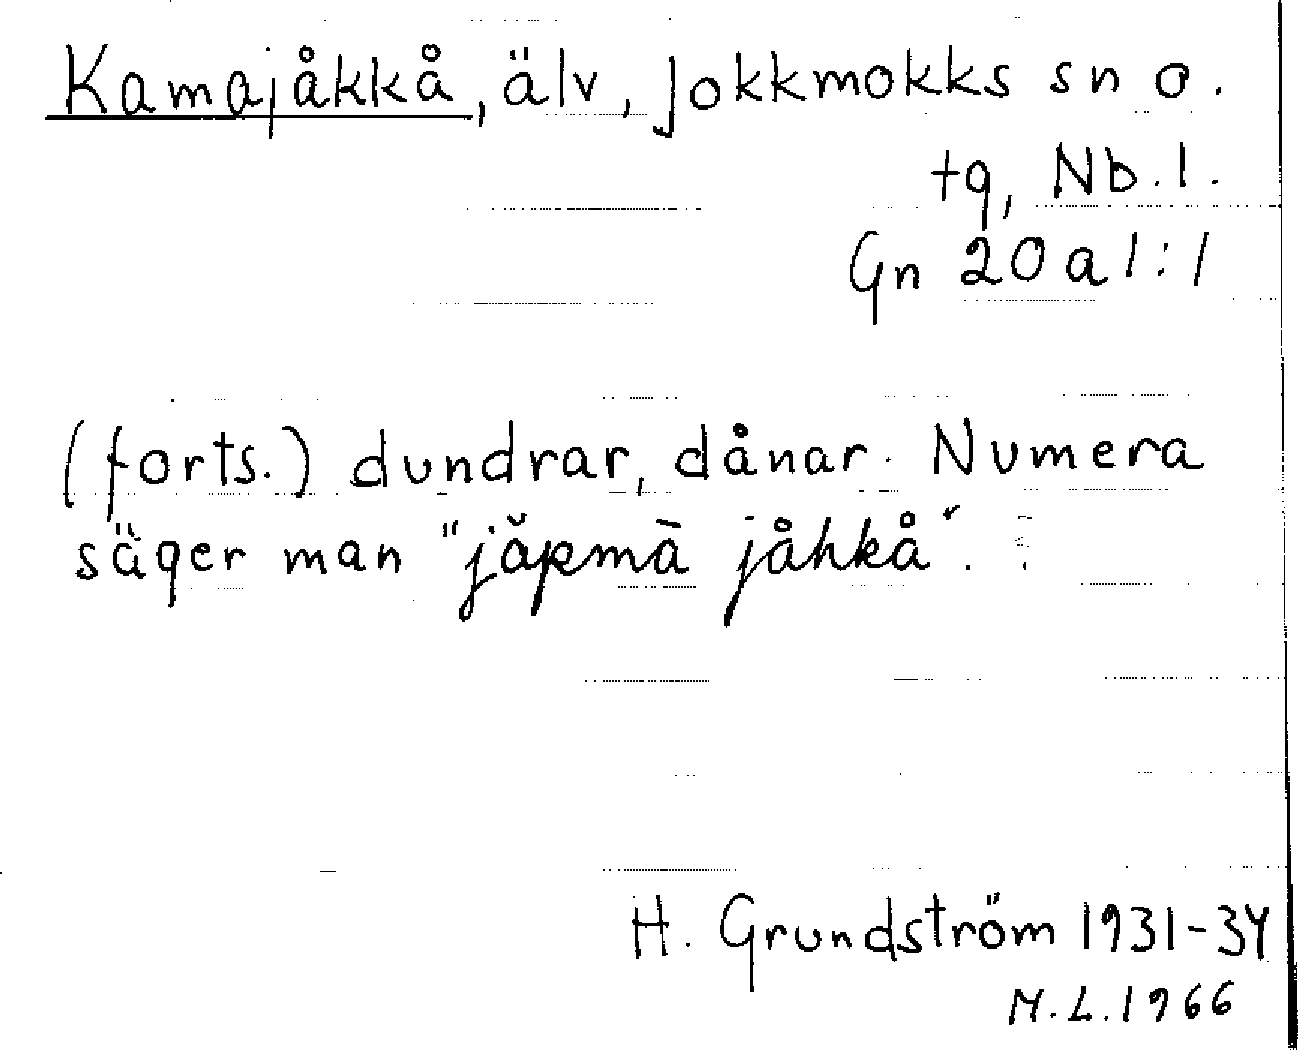 Kamajåkkå, älv, Jokkmokks sn o.
tg, Nb.l.
Gn 20 a 1:1
(forts.) dundrar, dånar. Numera
säger man "jăpmā jåhkå".
H. Grundström 1931-34
M.L.1966